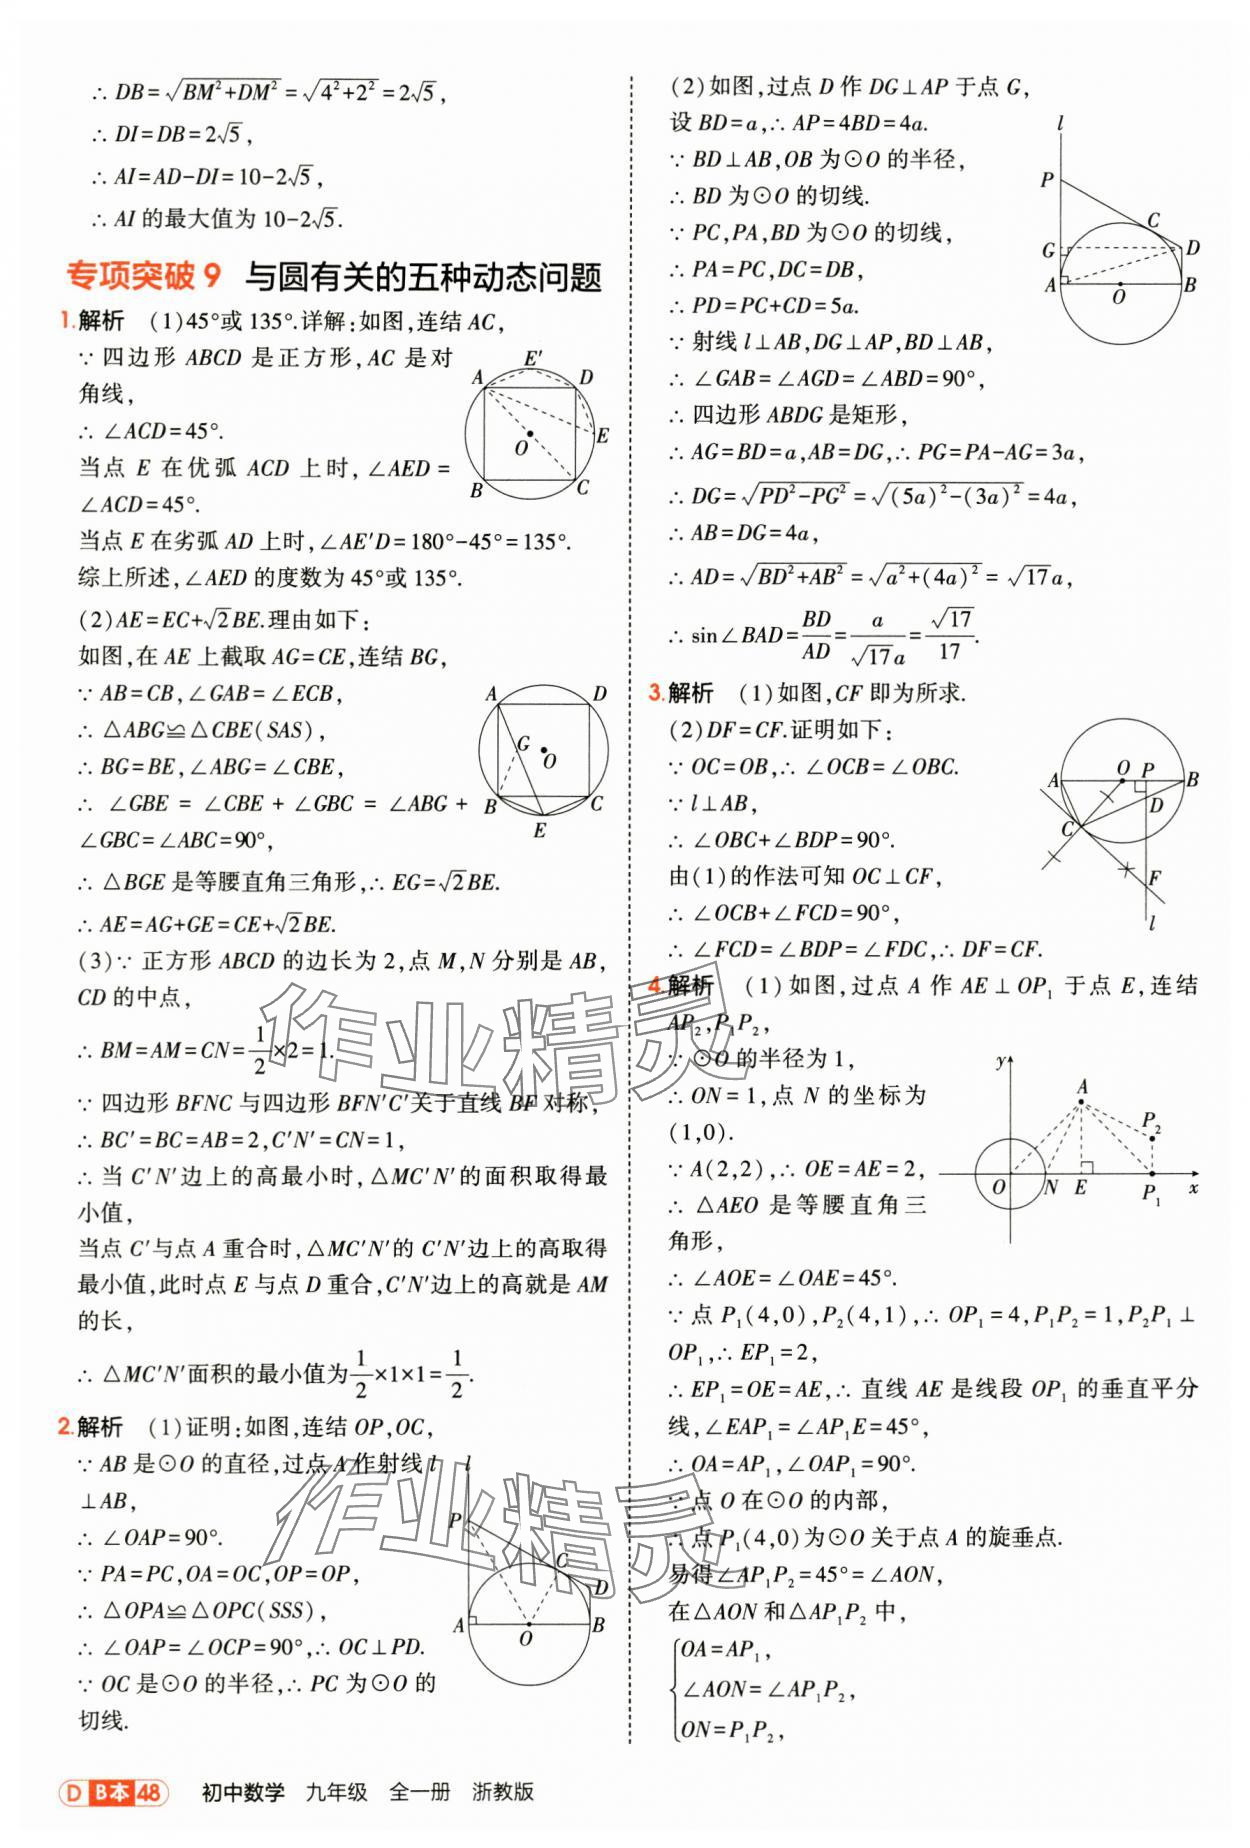 ∴ DB=√(BM²+DM²)=√(4²+2²)=2√5,
∴ DI=DB=2√5,
∴ AI=AD-DI=10-2√5,
∴ AI 的最大值为 10-2√5.
专项突破 9 与圆有关的五种动态问题
1.解析 (1)45°或 135°.详解:如图,连结 AC,
∵ 四边形 ABCD 是正方形,AC 是对
角线,
∴ ∠ACD=45°.
当点 E 在优弧 ACD 上时,∠AED=
∠ACD=45°.
当点 E 在劣弧 AD 上时,∠AE′D=180°-45°=135°.
综上所述,∠AED 的度数为 45°或 135°.
E′
A
D
E
O
B
C
(2)AE=EC+√2BE.理由如下:
如图,在 AE 上截取 AG=CE,连结 BG,
∵ AB=CB,∠GAB=∠ECB,
∴ △ABG≌△CBE(SAS),
∴ BG=BE,∠ABG=∠CBE,
∴ ∠GBE = ∠CBE + ∠GBC = ∠ABG +
∠GBC=∠ABC=90°,
∴ △BGE 是等腰直角三角形,∴ EG=√2BE.
∴ AE=AG+GE=CE+√2BE.
A
D
G
O
B
C
E
(3)∵ 正方形 ABCD 的边长为 2,点 M,N 分别是 AB,
CD 的中点,
∴ BM=AM=CN=1/2×2=1.
∵ 四边形 BFNC 与四边形 BFN′C′关于直线 BF 对称,
∴ BC′=BC=AB=2,C′N′=CN=1,
∴ 当 C′N′边上的高最小时,△MC′N′的面积取得最
小值,
当点 C′与点 A 重合时,△MC′N′的 C′N′边上的高取得
最小值,此时点 E 与点 D 重合,C′N′边上的高就是 AM
的长,
∴ △MC′N′面积的最小值为1/2×1×1=1/2.
2.解析 (1)证明:如图,连结 OP,OC,
∵ AB 是⊙O 的直径,过点 A 作射线 l
⊥AB,
∴ ∠OAP=90°.
∵ PA=PC,OA=OC,OP=OP,
∴ △OPA≌△OPC(SSS),
∴ ∠OAP=∠OCP=90°,∴ OC⊥PD.
∵ OC 是⊙O 的半径,∴ PC 为⊙O 的
切线.
l
P
C
D
A
O
B
(2)如图,过点 D 作 DG⊥AP 于点 G,
设 BD=a,∴ AP=4BD=4a.
∵ BD⊥AB,OB 为⊙O 的半径,
∴ BD 为⊙O 的切线.
∵ PC,PA,BD 为⊙O 的切线,
∴ PA=PC,DC=DB,
∴ PD=PC+CD=5a.
∵ 射线 l⊥AB,DG⊥AP,BD⊥AB,
∴ ∠GAB=∠AGD=∠ABD=90°,
∴ 四边形 ABDG 是矩形,
∴ AG=BD=a,AB=DG,∴ PG=PA-AG=3a,
∴ DG=√(PD²-PG²)=√((5a)²-(3a)²)=4a,
∴ AB=DG=4a,
∴ AD=√(BD²+AB²)=√(a²+(4a)²)=√17a,
∴ sin∠BAD=BD/AD=a/(√17a)=√17/17.
l
P
C
G
D
A
O
B
3.解析 (1)如图,CF 即为所求.
(2)DF=CF.证明如下:
∵ OC=OB,∴ ∠OCB=∠OBC.
∵ l⊥AB,
∴ ∠OBC+∠BDP=90°.
由(1)的作法可知 OC⊥CF,
∴ ∠OCB+∠FCD=90°,
∴ ∠FCD=∠BDP=∠FDC,∴ DF=CF.
A
O
P
B
D
C
F
l
4.解析 (1)如图,过点 A 作 AE⊥OP₁ 于点 E,连结
AP₂,P₁P₂,
∵ ⊙O 的半径为 1,
∴ ON=1,点 N 的坐标为
(1,0).
∵ A(2,2),∴ OE=AE=2,
∴ △AEO 是等腰直角三
角形,
∴ ∠AOE=∠OAE=45°.
∵ 点 P₁(4,0),P₂(4,1),∴ OP₁=4,P₁P₂=1,P₂P₁⊥
OP₁,∴ EP₁=2,
∴ EP₁=OE=AE,∴ 直线 AE 是线段 OP₁ 的垂直平分
线,∠EAP₁=∠AP₁E=45°,
∴ OA=AP₁,∠OAP₁=90°.
∵ 点 O 在⊙O 的内部,
∴ 点 P₁(4,0)为⊙O 关于点 A 的旋垂点.
易得∠AP₁P₂=45°=∠AON,
在△AON 和△AP₁P₂ 中,
{OA=AP₁,
∠AON=∠AP₁P₂,
ON=P₁P₂,
y
A
P₂
O
N
E
P₁
x
作业精灵
作业精灵
D B本 48 初中数学 九年级 全一册 浙教版